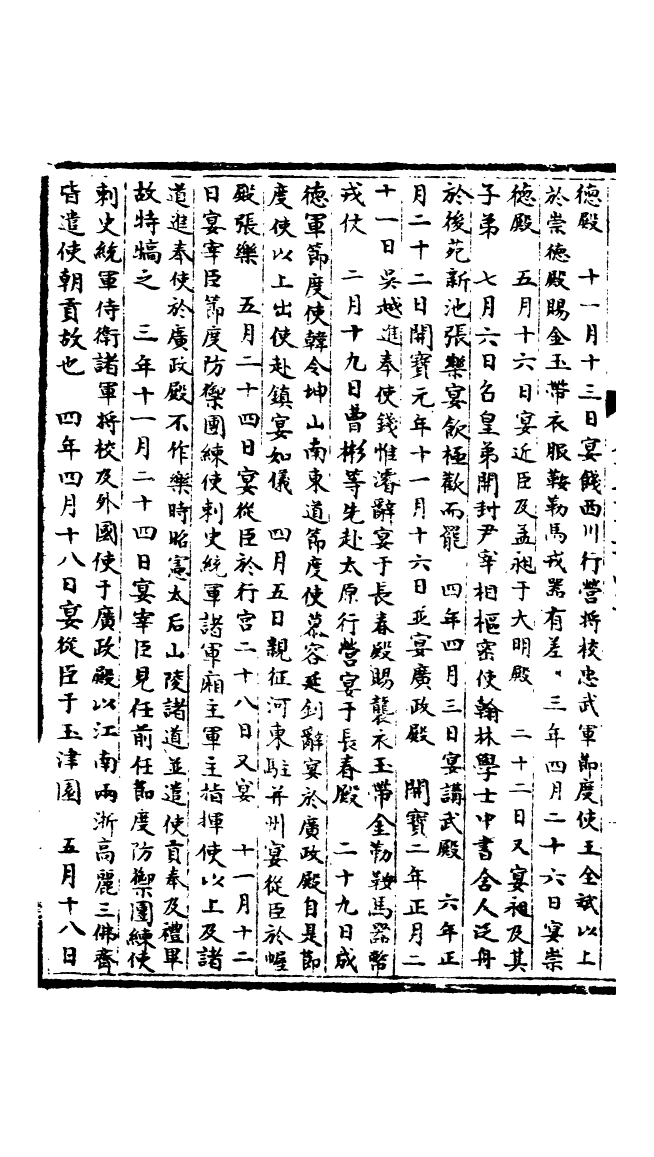 德殿　十一月十三日宴餞西川行營將校忠武軍節度使王全斌以上
於崇德殿賜金玉帶衣服鞍勒馬戎器有差。三年四月二十六日宴崇
德殿　五月十六日宴近臣及孟昶于大明殿　二十二日又宴昶及其
子弟　七月六日召皇弟開封尹宰相樞密使翰林學士中書舍人泛舟
於後苑新池張樂宴飲極歡而罷　四年四月三日宴講武殿　六年正
月二十二日開寶元年十一月十六日並宴廣政殿　開寶二年正月二
十一日吳越進奉使錢惟濬辭宴于長春殿賜襲衣玉帶金勒鞍馬器幣
戎仗　二月十九日曹彬等先赴太原行營宴于長春殿　二十九日成
德軍節度使韓令坤山南東道節度使慕容延釗辭宴於廣政殿自是節
度使以上出使赴鎮宴如儀　四月五日親征河東駐并州宴從臣於幄
殿張樂　五月二十四日宴從臣於行宮二十八日又宴　十一月十二
日宴宰臣節度防禦團練使刺史統軍諸軍廂主軍主指揮使以上及諸
道進奉使於廣政殿不作樂時昭憲太后山陵諸道並遣使貢奉及禮畢
故特犒之　三年十一月二十四日宴宰臣見任前任節度防禦團練使
刺史統軍侍衛諸軍將校及外國使于廣政殿以江南兩浙高麗三佛齊
皆遣使朝貢故也　四年四月十八日宴從臣于玉津園　五月十八日